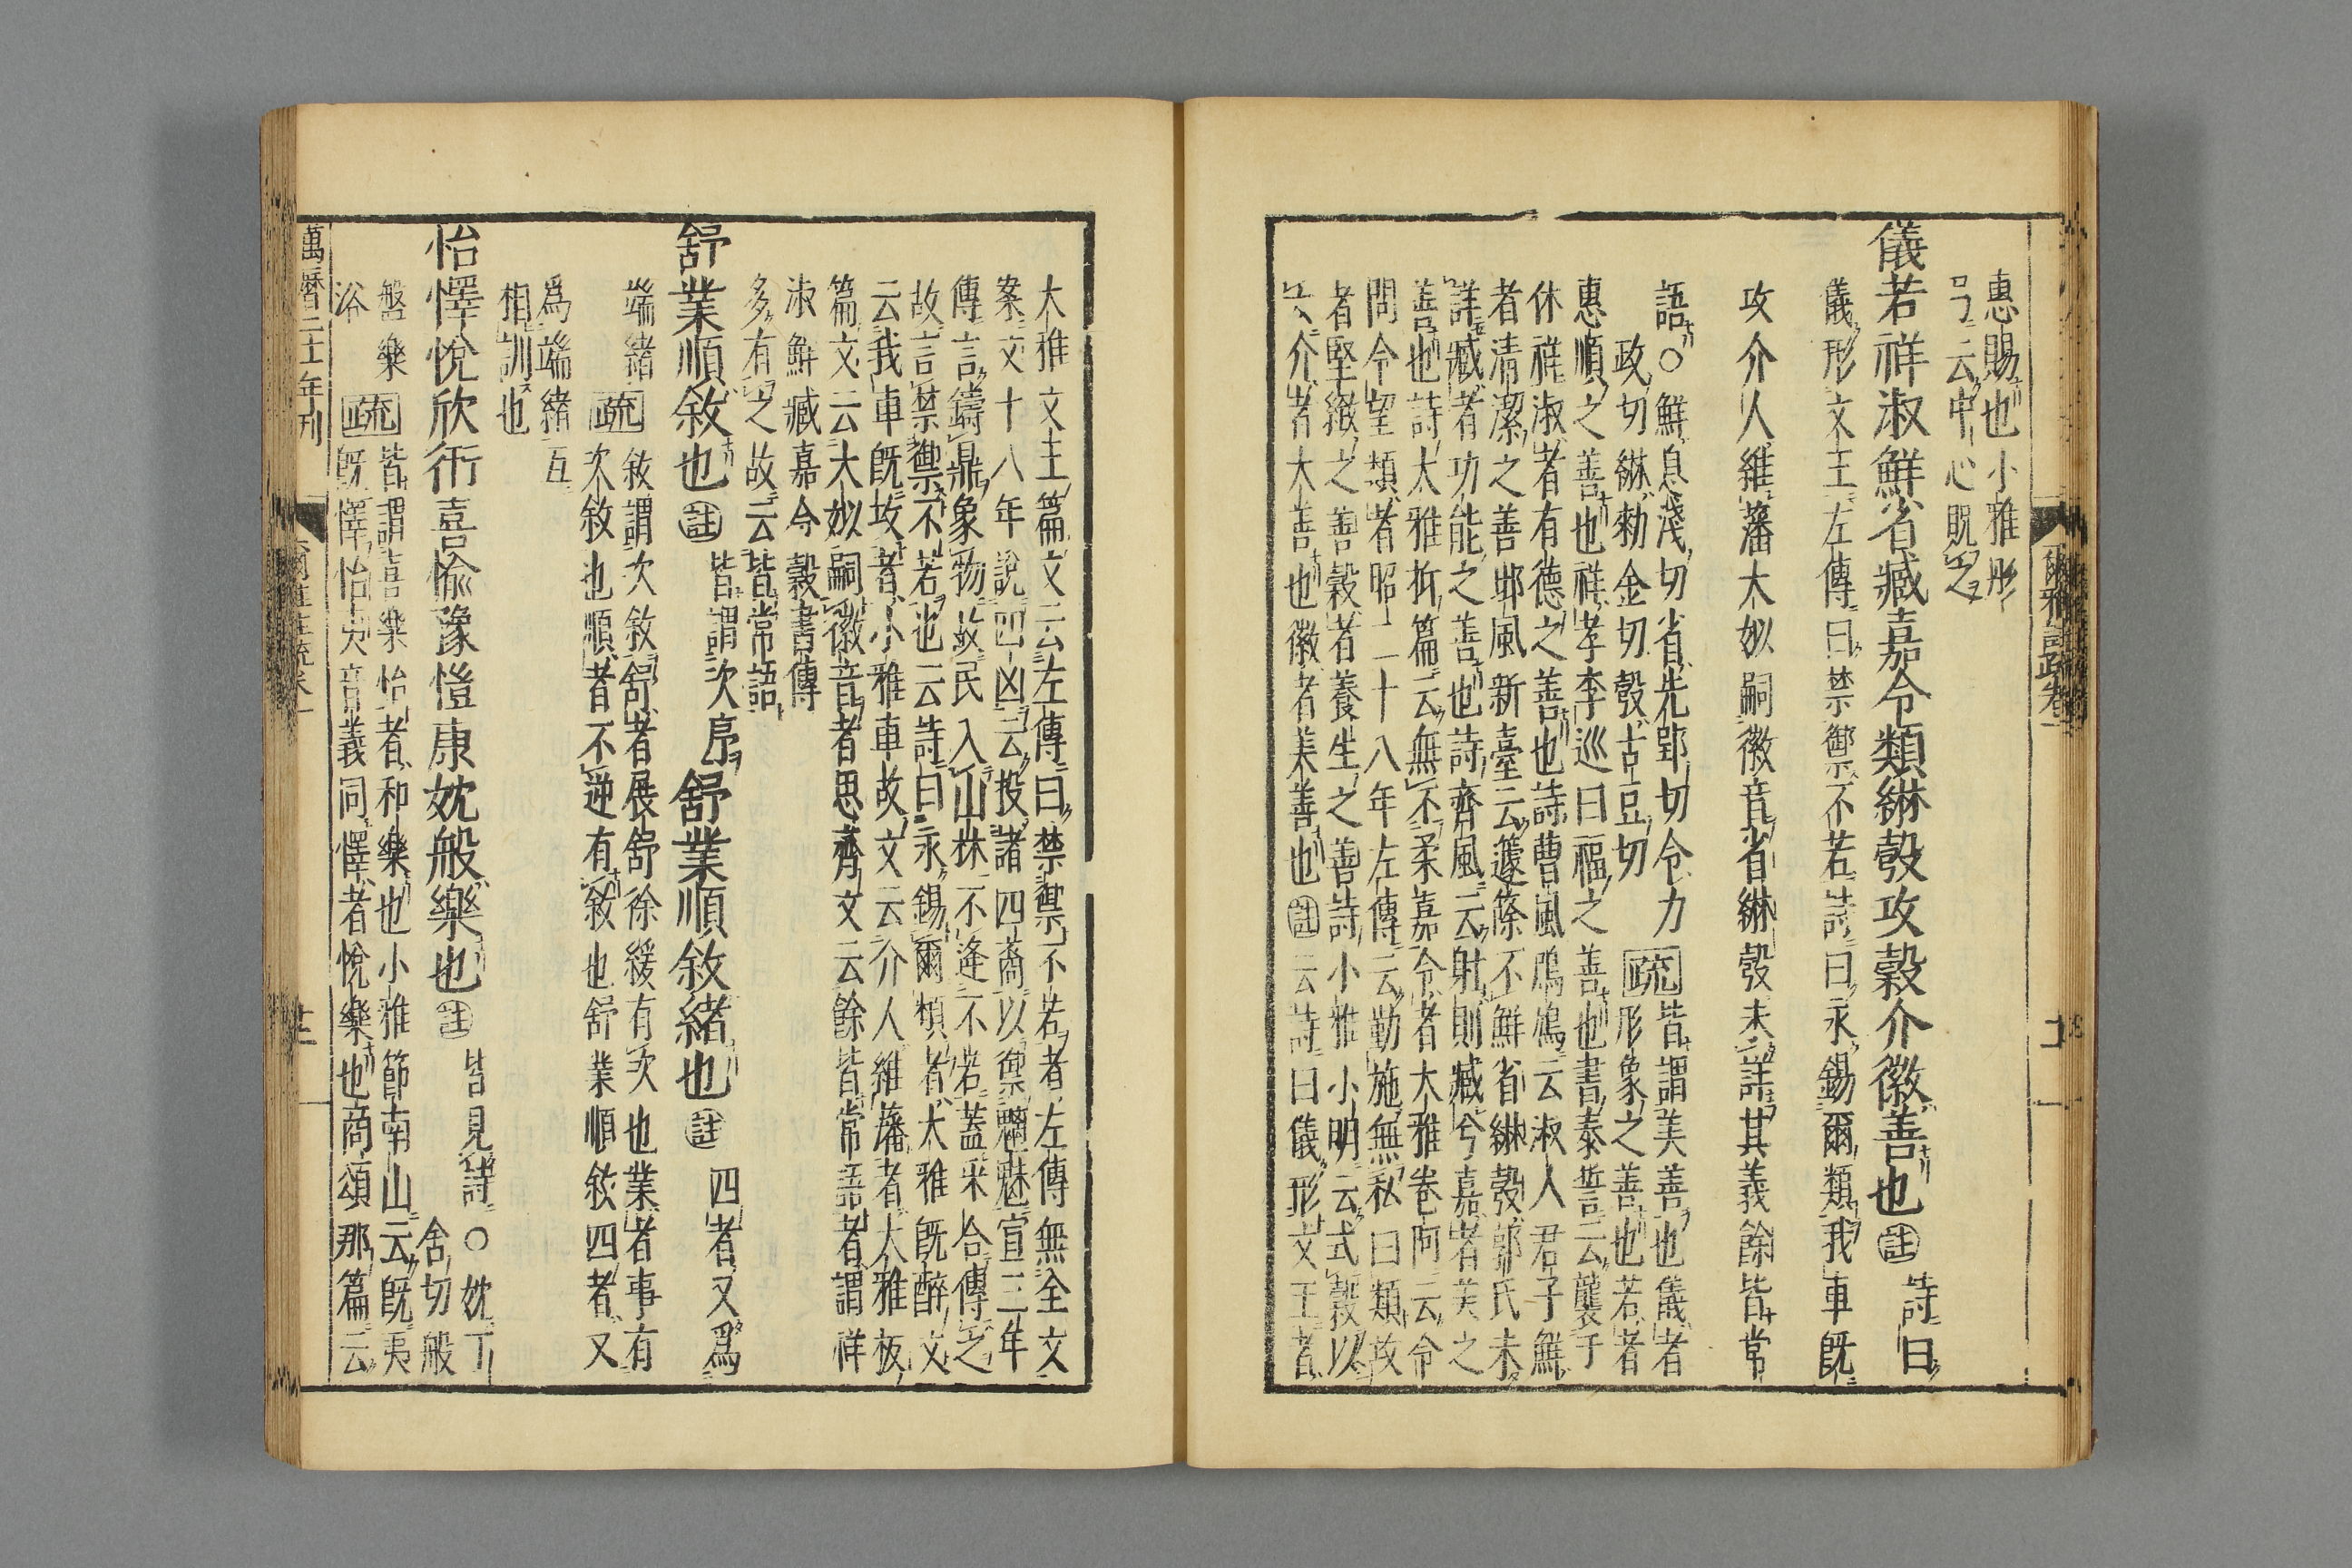 爾雅註疏卷一
惠賜也小雅彤
弓云中心貺之
儀若祥淑鮮省臧嘉令類綝彀攻穀介徽善也註詩曰
儀形文王左傳曰禁禦不若詩曰永錫爾類我車既
攻介人維藩大姒嗣徽音省綝彀未詳其義餘皆常
語○鮮息淺切省先郢切令力
政切綝勑金切彀古豆切
疏皆謂美善也儀者
形象之善也若者
惠順之善也祥者李巡曰福之善也書泰誓云襲于
休祥淑者有德之善也詩曹風鳲鳩云淑人君子鮮
者清潔之善邶風新臺云籧篨不鮮省綝彀郭氏未
詳臧者功能之善也詩齊風云射則臧兮嘉者美之
善也詩大雅抑篇云無不柔嘉令者大雅卷阿云令
聞令望類者昭二十八年左傳云勤施無私曰類攻
者堅緻之善穀者養生之善詩小雅小明云式穀以
女介者大善也徽者美善也註云詩曰儀形文王者
大雅文王篇文云左傳曰禁禦不若者左傳無全文
案文十八年說四凶云投諸四裔以禦魑魅宣三年
傳言鑄鼎象物故民入山林不逢不若蓋采合傳文
故言禁禦不若也云詩曰永錫爾類者大雅既醉文
云我車既攻者小雅車攻文云介人維藩者大雅板
篇文云大姒嗣徽音者思齊文云餘皆常語者謂祥
淑鮮臧嘉令穀書傳
多有之故云皆常語
舒業順敘也註皆謂次序舒業順敘緒也註四者又爲
端緒疏敘謂次敘舒者展舒徐緩有次也業者事有
次敘也順者不逆有敘也舒業順敘四者又
爲端緒互
相訓也
怡懌悅欣衎喜愉豫愷康妉般樂也註皆見詩○妉丁
含切般
盤樂
浴
疏皆謂喜樂怡者和樂也小雅節南山云既夷
既懌怡夷音義同懌者悅樂也商頌那篇云
萬曆二十一年刊